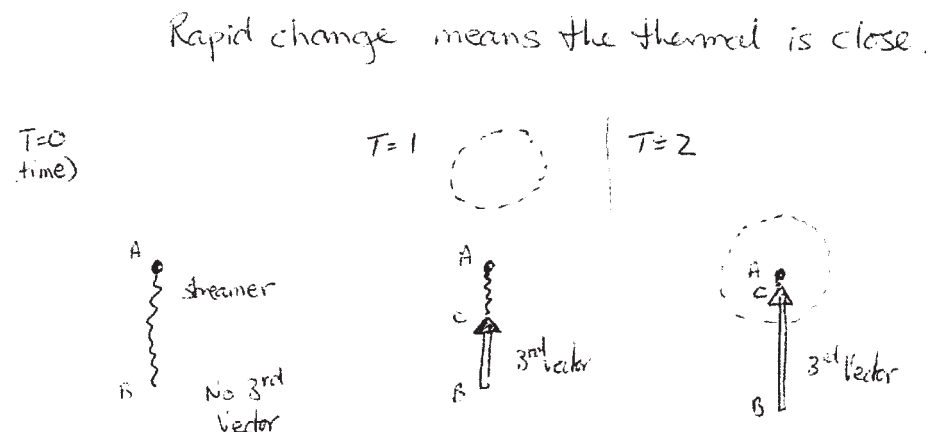 Rapid change means the thermal is close.
T=0
time)
T=1
T=2
A
streamer
B
No 3rd
Vector
A
C
3rd vector
B
A
C
3rd Vector
B